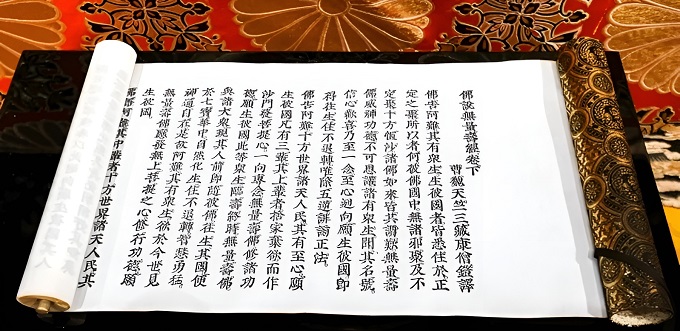 佛説無量壽經卷下
曹魏天竺三藏康僧鎧譯
佛告阿難其有衆生生彼國者皆悉住於正
定之聚所以者何彼佛國中無諸邪聚及不
定聚十方恆沙諸佛如來皆共讚歎無量壽
佛威神功德不可思議諸有衆生聞其名號
信心歡喜乃至一念至心迴向願生彼國即
得往生住不退轉唯除五逆誹謗正法
佛告阿難十方世界諸天人民其有至心願
生彼國凡有三輩其上輩者捨家棄欲而作
沙門發菩提心一向專念無量壽佛修諸功
德願生彼國此等衆生臨壽終時無量壽佛
與諸大衆現其人前即隨彼佛往生其國便
於七寶華中自然化生住不退轉智慧勇猛
神通自在是故阿難其有衆生欲於今世見
無量壽佛應發無上菩提之心修行功德願
生彼國
佛告阿難其中輩者十方世界諸天人民其